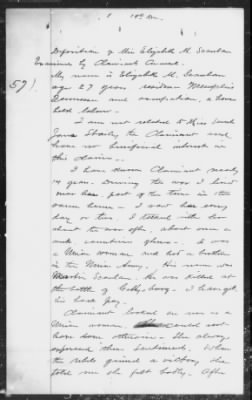 57)
Deposition of Miss Elizabeth M. Scanlan
Examined by Claimants Counsel.
My name is Elizabeth M. Scanlan
age 27 years residence Memphis
Tennessee and occupation, a house
hold labor.
I am not related to Miss
Jane the Claimant and
have no beneficial interest in
this claim.
I have known Claimant nearly
14 years. During the war I lived
near her part of the time in the
same house. I saw her every
day or two. I talked with her
about the war often, about once a
week sometimes oftener. I was
a Union woman and had a brother
in the Union Army. His name was
Martin Scanlan. He was killed at
the battle of Gettysburg. I have got
his back pay.
Claimant looked on me as a
Union woman could not
have been otherwise. She always
expressed Union sentiments. When
the rebels gained a victory she
told me she felt badly. After